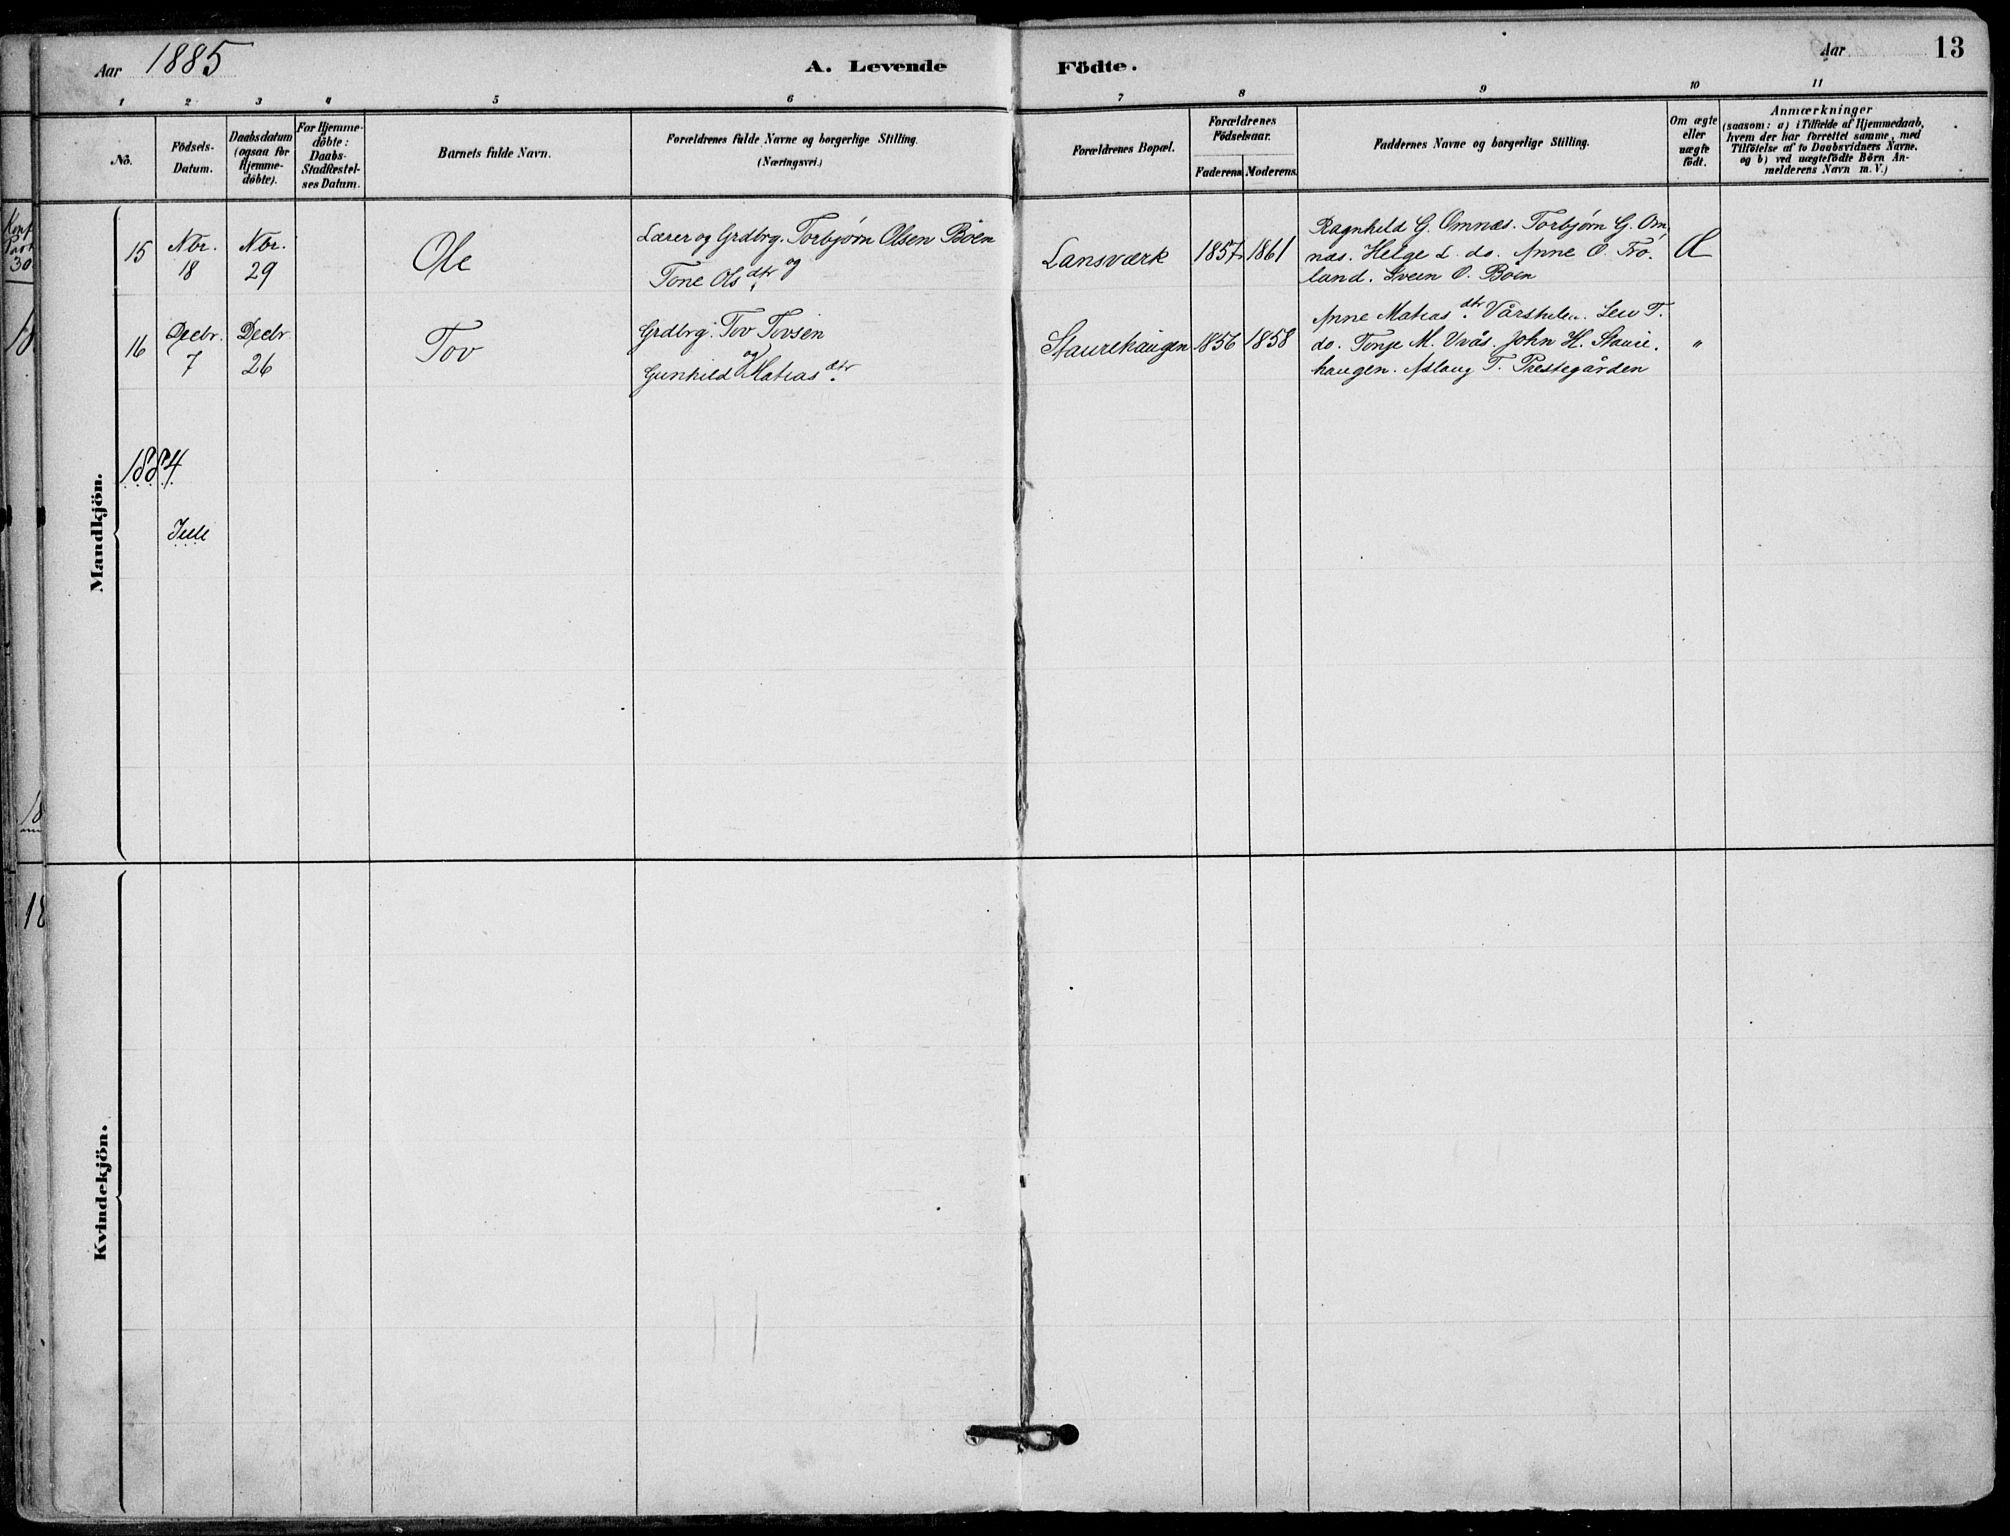 Aar 1885
A. Levende Födte.
Aar
13
1 2 3 4 5 6 7 8 9 10 11
No.
Födsels-
Datum.
Daabsdatum
(ogsaa for
Hjemme-
döbte).
For Hjemme-
döbte:
Daabs-
Stadfæstel-
ses Datum.
Barnets fulde Navn.
Forældrenes fulde Navne og borgerlige Stilling.
(Næringsvei.)
Forældrenes Bopæl.
Forældrenes
Födselsaar.
Faderens Moderens.
Faddernes Navne og borgerlige Stilling.
Om ægte
eller
uægte
födt.
Anmærkninger
(saasom: a) i Tilfælde af Hjemmedaab,
hvem der har forrettet samme, med
Tilföielse af to Daabsvidners Navne.
og b) ved uægtefödte Börn An-
melderens Navn m. V.)
Mandkjön.
15
Nbr.
18
Nbr.
29
Ole
Lærer og Grdbrg. Torbjørn Olsen Bøen
og
Tone Olsdtr.
Lansværk
1857
1861
Ragnhild G. Omnæs. Torbjørn G. Om
næs. Helge L. do. Anne O. Trø
land. Sveen O. Bøen
Æ
16
Decbr.
7
Decbr
26
Tov
Grdbrg. Tov Tovsen
og
Gunhild Matiasdtr.
Staurehaugen
1856
1858
Anne Matiasdtr. Leiv T.
do. Tonje M. Vrås. John H. Staure.
haugen. Aslaug T. Prestegården
"
1884
Kvindekjön.